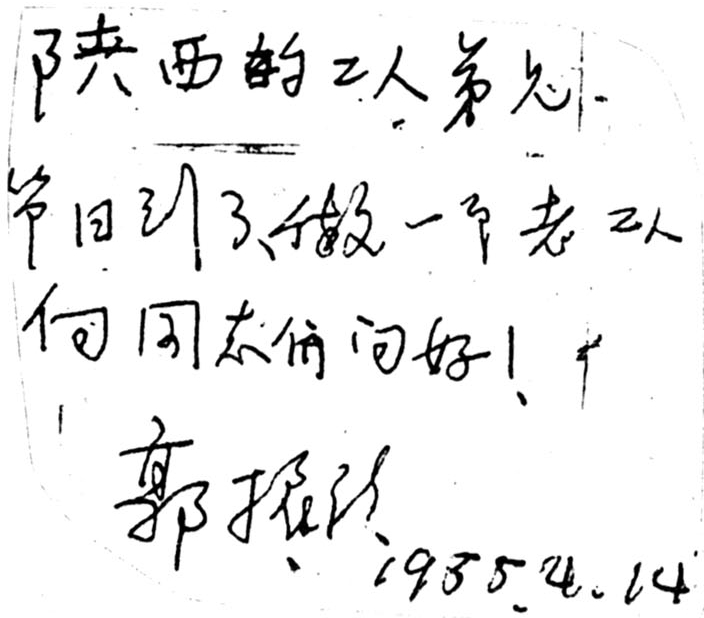 陕西的工人弟兄
节日到了,做一个老工人
向同志们问好!
郭振
1985.4.14